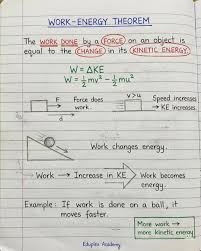 WORK-ENERGY THEOREM
The WORK DONE by a FORCE on an object is
equal to the CHANGE in its KINETIC ENERGY.
W = ΔKE
W = ½mv² − ½mu²
F
d
Force does
work.
v>u
Speed increases
→ KE increases.
Work changes energy.
Work → Increase in KE
Work becomes
energy.
Example: If work is done on a ball, it
moves faster.
More work →
more kinetic energy
Eduplex Academy